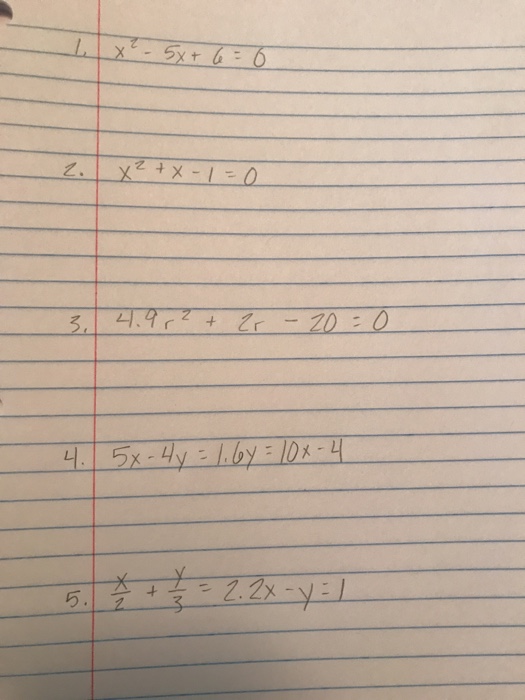 1. x² - 5x + 6 = 0
2. x² + x - 1 = 0
3. 4.9r² + 2r - 20 = 0
4. 5x - 4y = 1.6y = 10x - 4
5. x/2 + y/3 = 2.2x - y = 1